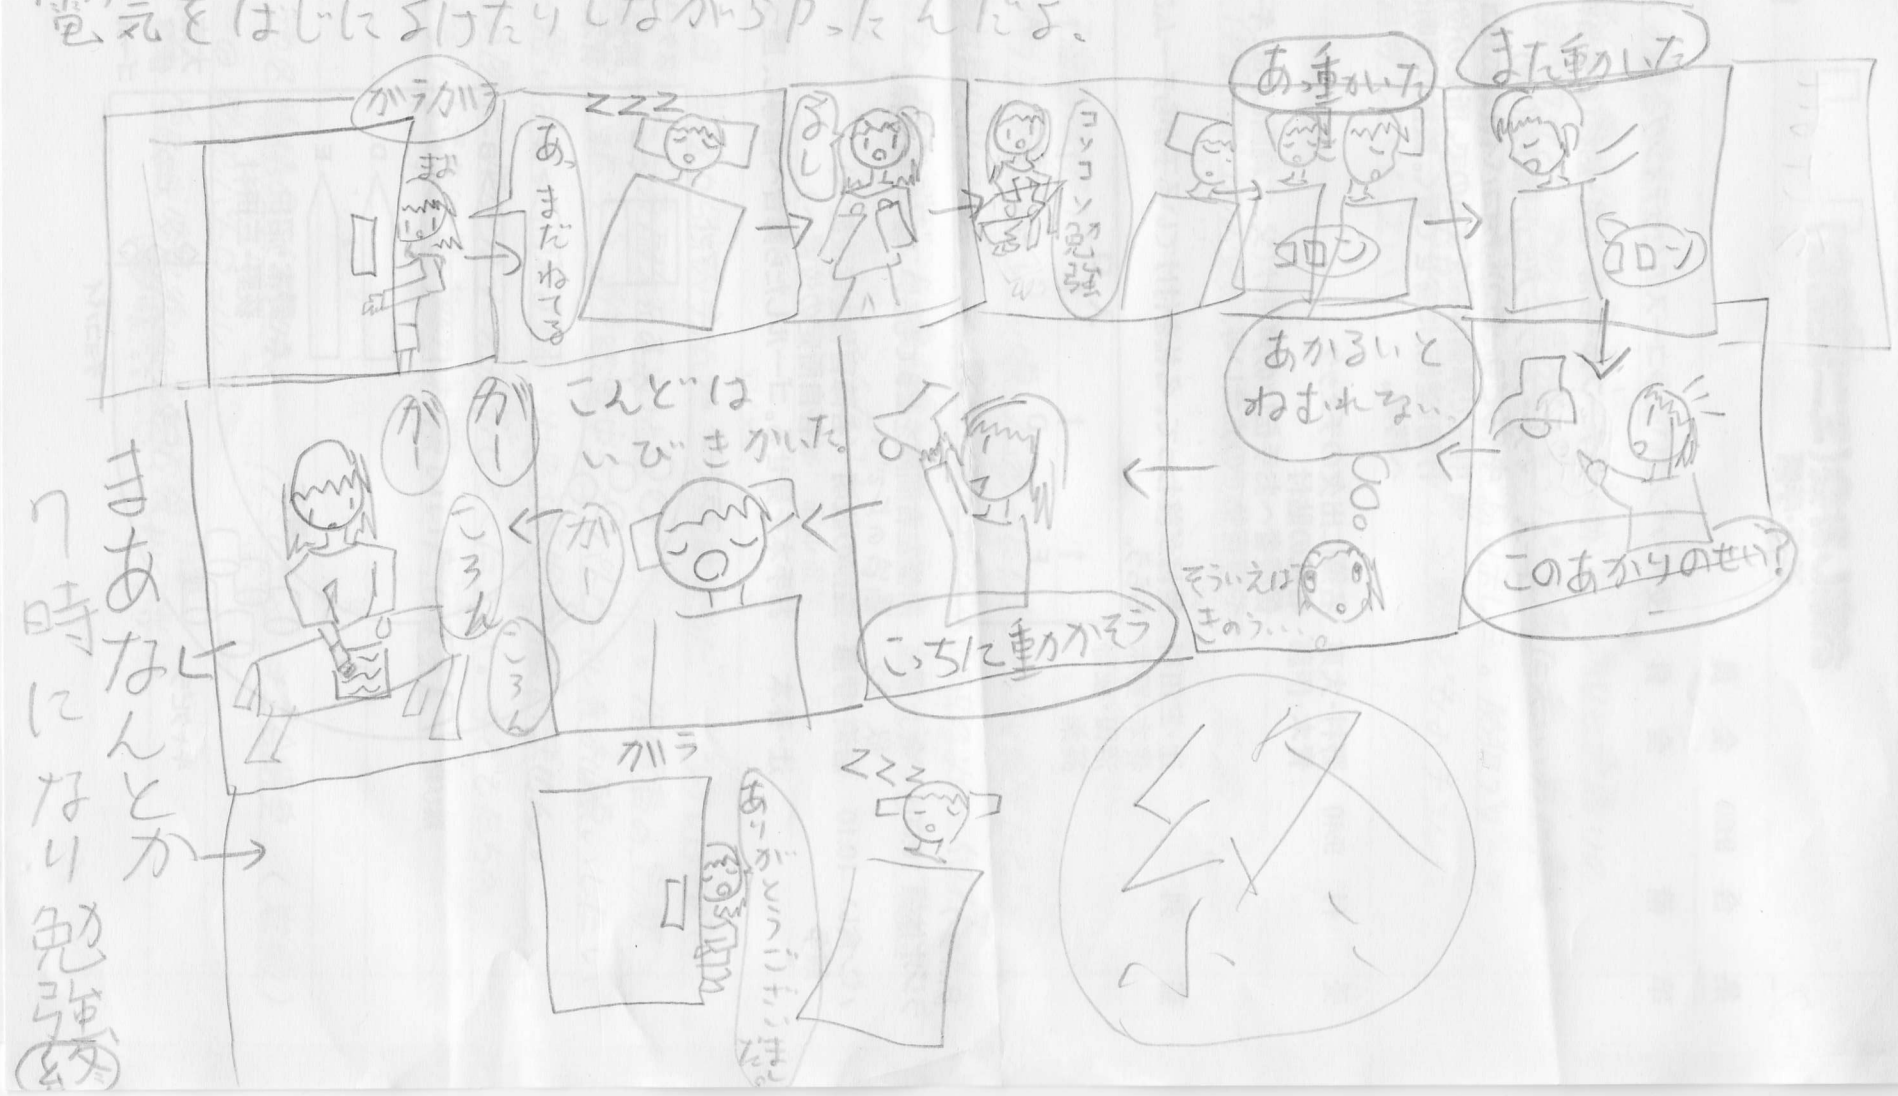 電気をはじによけたりしながらやったんだよ。
ガラガラ
あ、まだねてる。
ZZZ
よし
コツコツ勉強
あっ動かいた
コロン
また動かいた
コロン
このあかりのせい?
あかるいと
ねむれない、
そういえば
きのう・・・。
こっちに動かそう
こんどは
いびきかいた。
がー
がー
がー
ころん
ころん
まあなんとか
7時になり勉強終
ガラ
ありがとうございました。
ZZZ
終